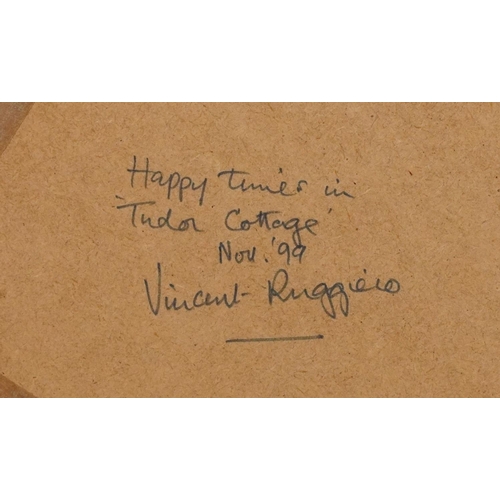 Happy times in
'Tudor Cottage'
Nov. '99
Vincent Ruggiero